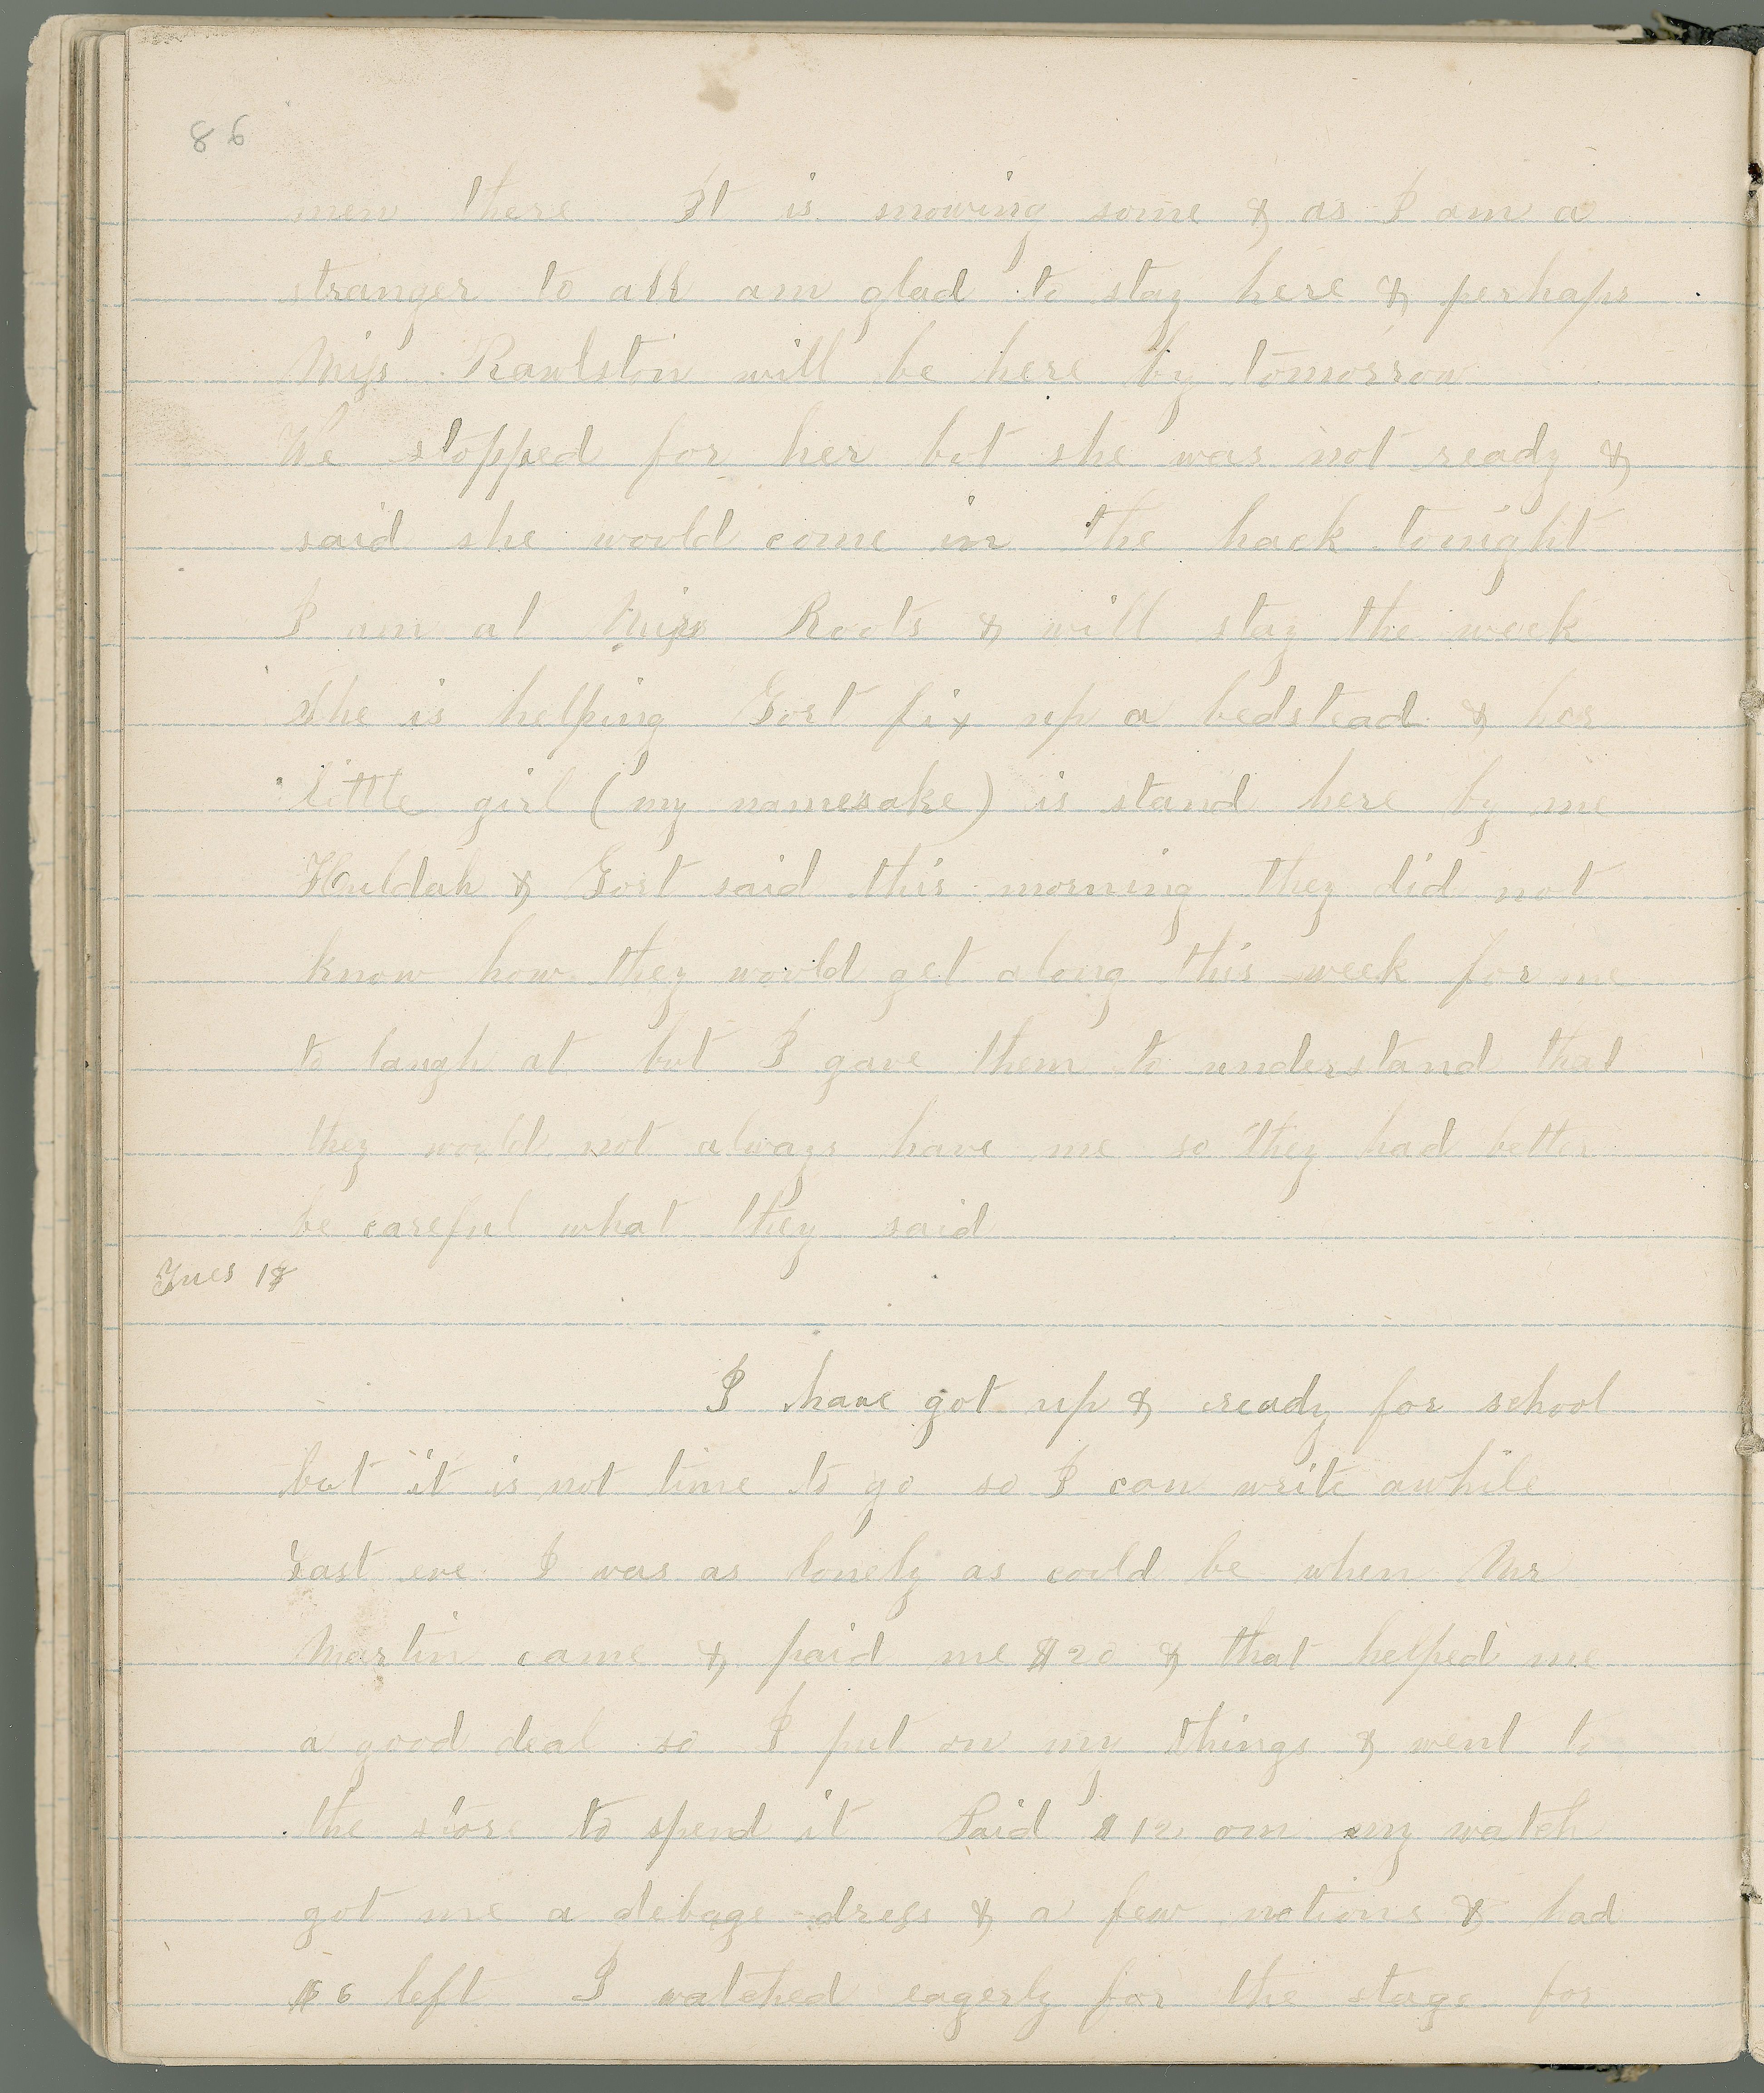 86
men there It is snowing some & as I am a
stranger to all am glad to stay here & perhaps
Miss Rawlston will be here by tomorrow
We stopped for her but she was not ready &
said she would come in the hack tonight
I am at Miss Roots & will stay the week
She is helping Gort fix up a bedstead & her
little girl (my namesake) is stand here by me
Huldah & Gort said this morning they did not
know how they would get along this week for me
to laugh at but I gave them to understand that
they would not always have me so they had better
be careful what they said
Tues 18
I have got up & ready for school
but it is not time to go so I can write awhile
Last eve I was as lonely as could be when Mr
Martin came & paid me $20 & that helped me
a good deal so I put on my things & went to
the store to spend it Paid $12 on my watch
got me a debage dress & a few notions & had
$6 left I watched eagerly for the stage for